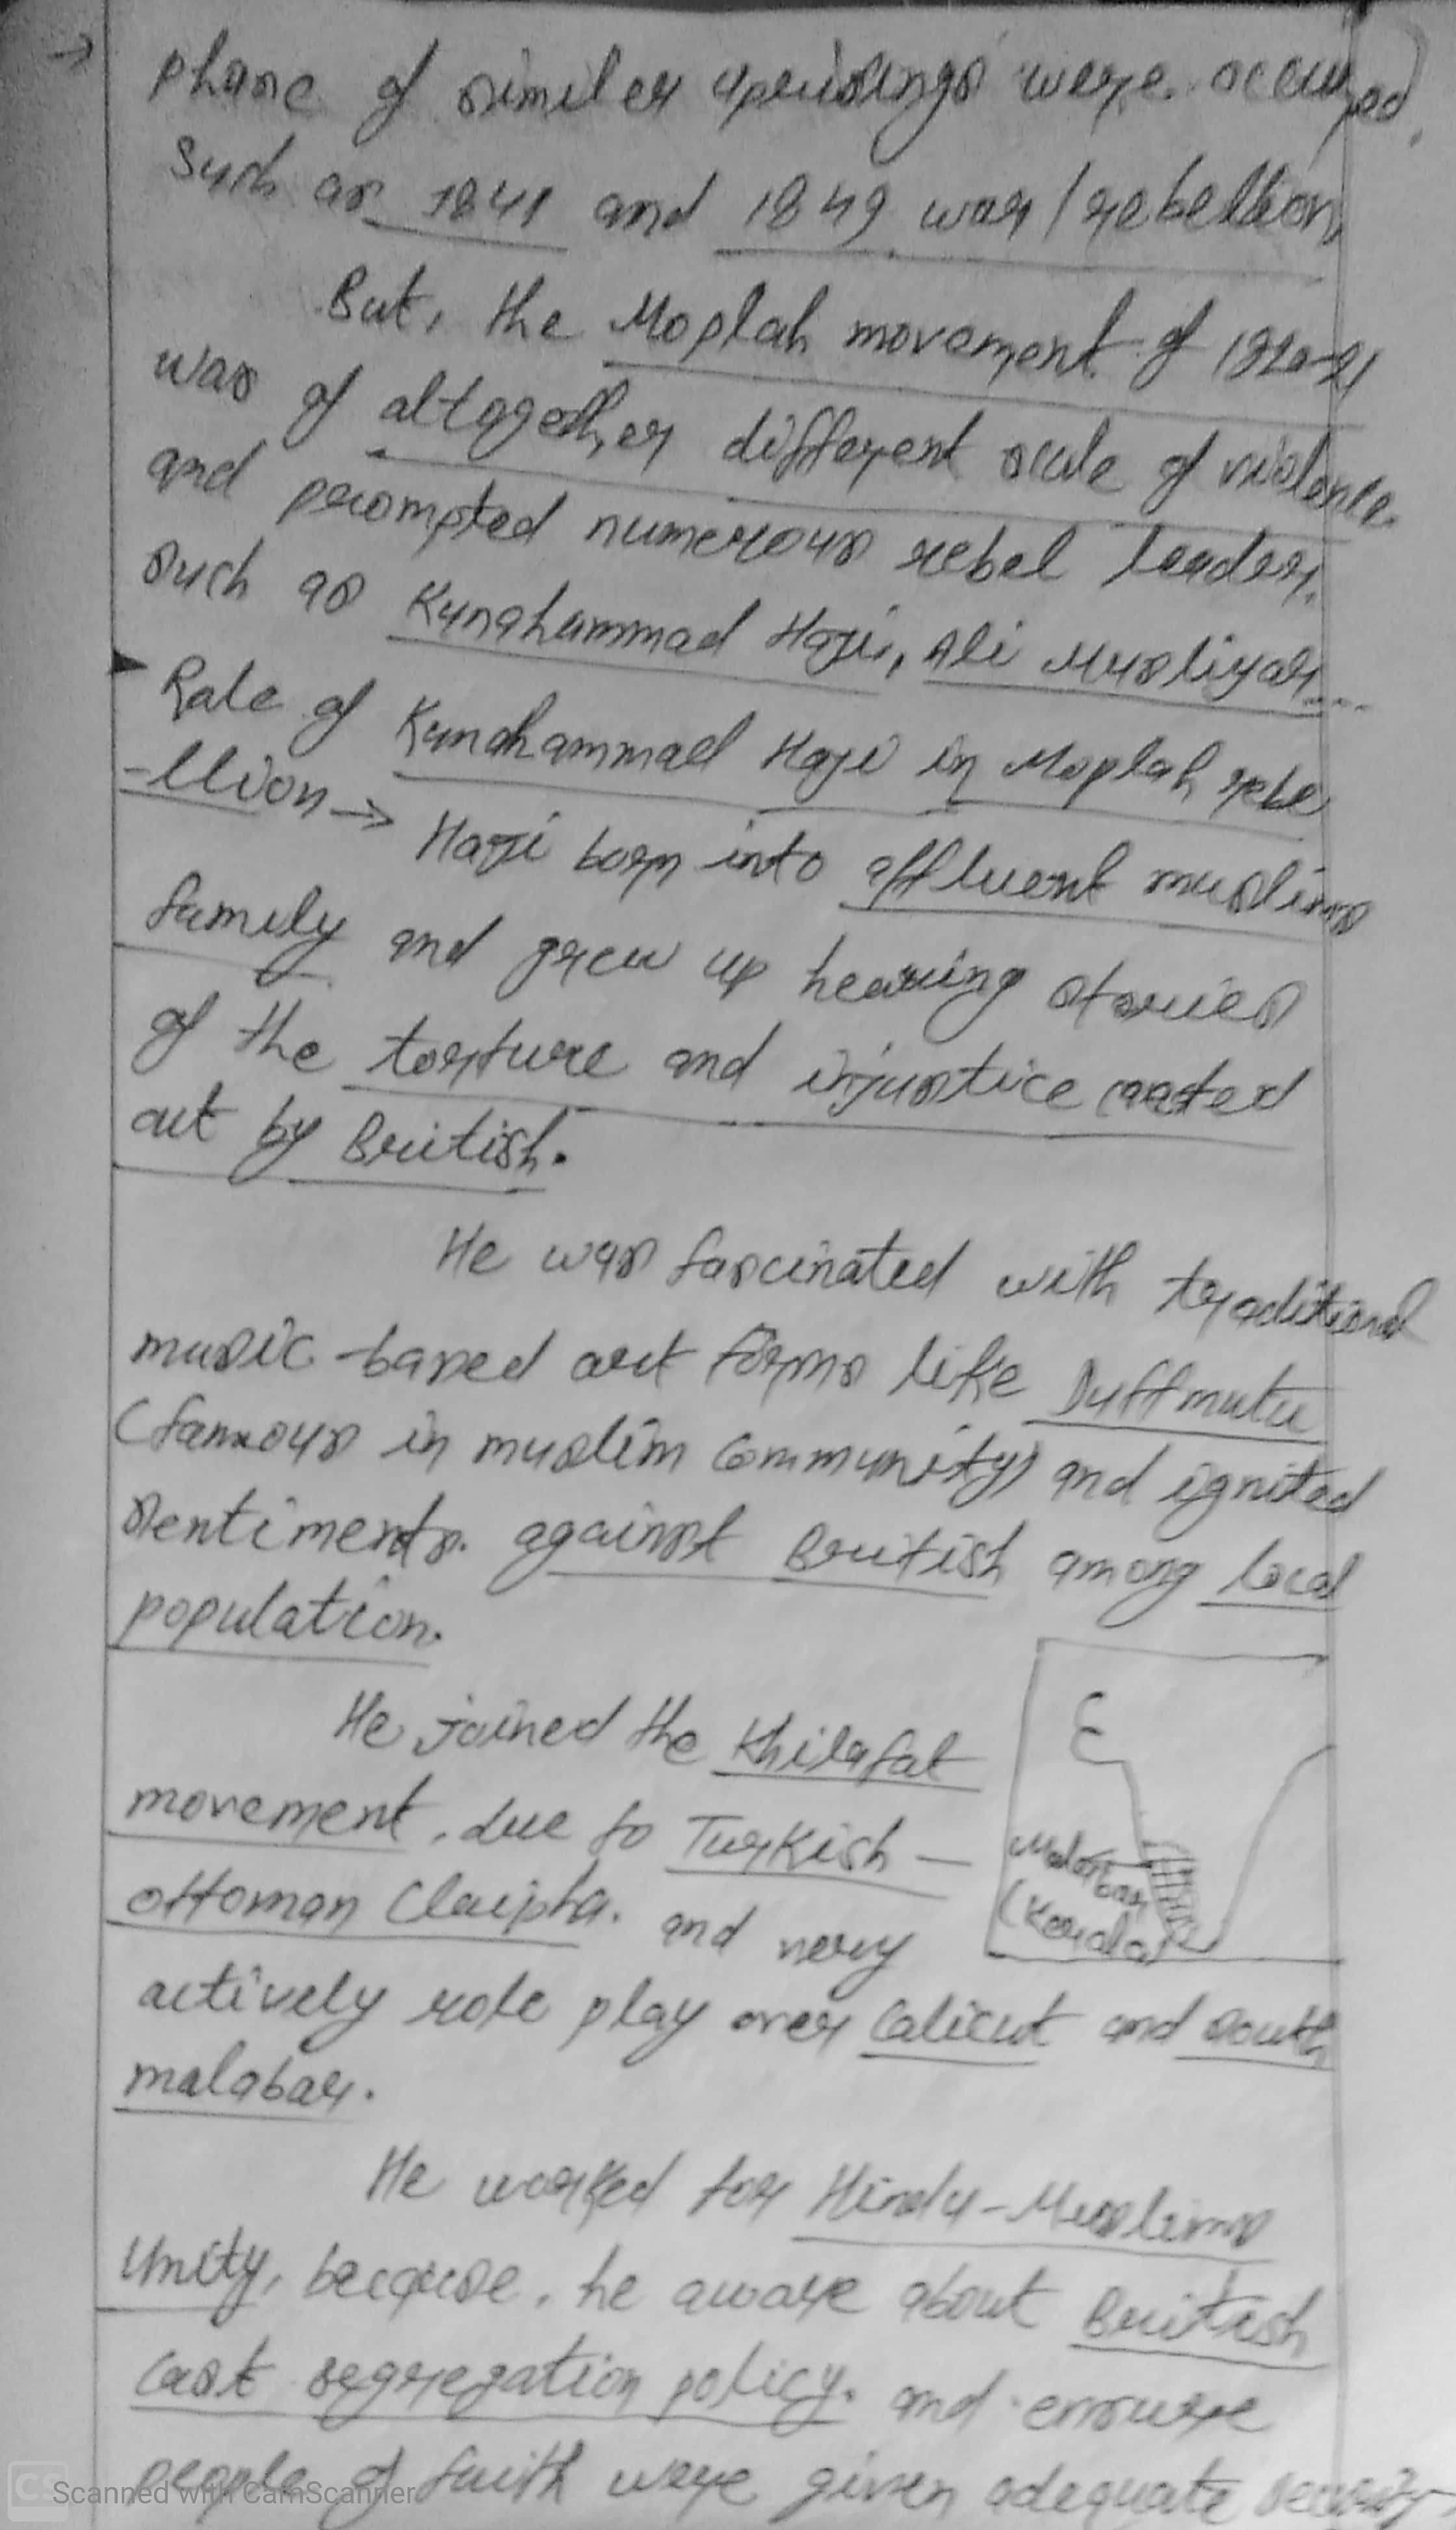 → phase of similer uprisings were occurred,
Such as 1841 and 1849 war/rebellion,
But, the Moplah movement of 1920-21
was of altogether different scale of violence
and prompted numerous rebel leader,
such as Kunahammad Haji, Ali Musliyar...
Role of Kunahammad Haji in Moplah rebe
-llion →
Haji born into affluent muslims
family and grew up hearing stories
of the torture and injustice
out by British.
He was fascinated with traditional
music-based art forms like Duffmutu
(famous in muslim Community) and ignited
sentiments. against British among local
population.
He joined the Khilafat
movement, due to Turkish-
Ottoman and very
actively role play over Calicut and South
malabar.
Malabar
(Kerala)
He worked for Hindu-Muslims
Unity, because, he aware about British
Cast segregation policy. and ensure
people of faith were given adequate security
CS Scanned with CamScanner